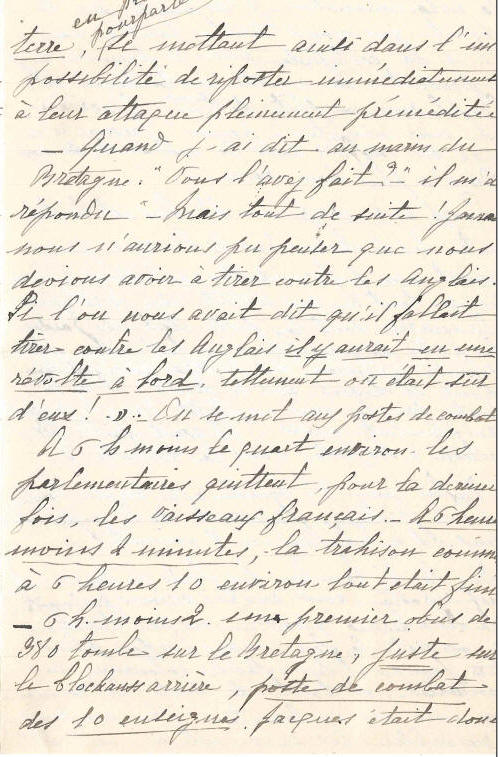 en
pourparle
terre, se mettant ainsi dans l'im
possibilité de riposter immédiatement
à leur attaque pleinement préméditée
– Quand j'ai dit au marin du
Bretagne. "Vous l'avez fait ?" il m'a
répondu "– Mais tout de suite ! Jama
nous n'aurions pu penser que nous
devions avoir à tirer contre les Anglais.
Si l'on nous avait dit qu'il fallait
tirer contre les Anglais il y aurait eu une
révolte à bord, tellement on était sûr
d'eux ! ». – On se met aux postes de combat
A 6 h moins le quart environ les
parlementaires quittent, pour la dernière
fois, les vaisseaux français. – A 6 heures
moins 2 minutes, la trahison comm
à 6 heures 10 environ tout était fini
– 6 h. moins 2. un premier obus de
380 tombe sur le Bretagne, juste sur
le blockauss arrière, poste de combat
des 10 enseignes. Jacques était donc